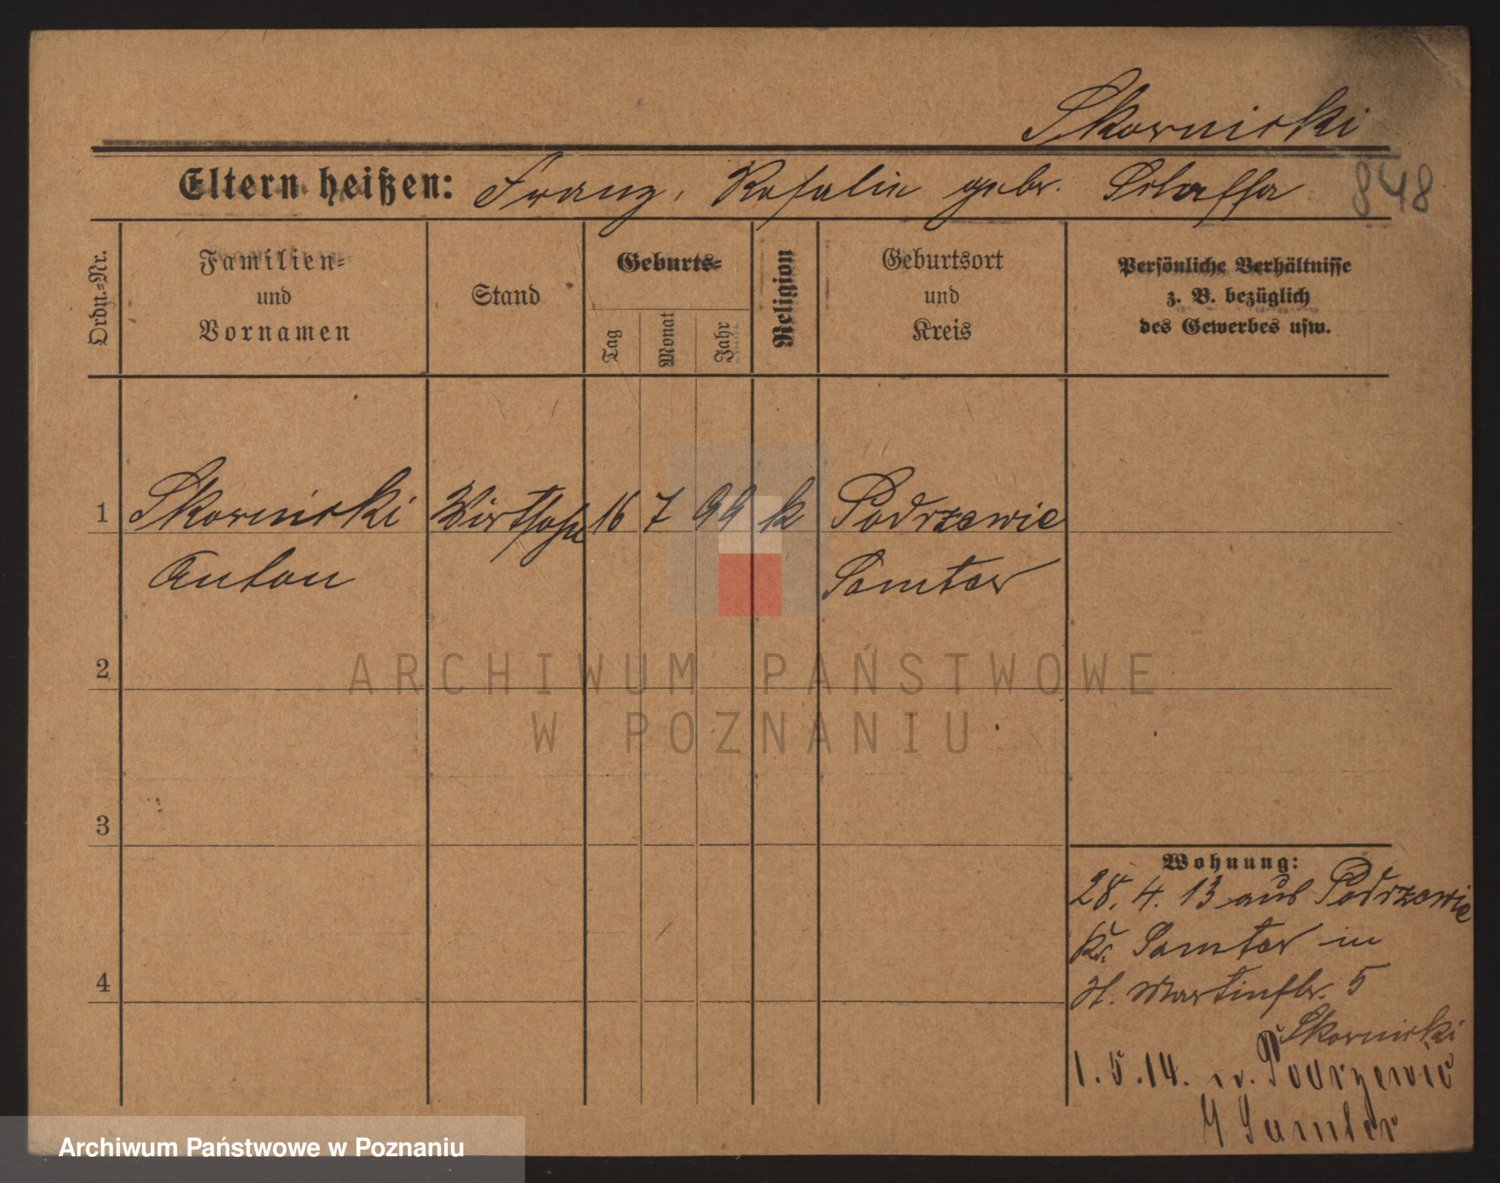 Skornicki
848
Eltern heißen: Franz, Rosalie gebr.
Ordn.-Nr.
Familien-
und
Vornamen
Stand
Geburts-
Tag
Monat
Jahr
Religion
Geburtsort
und
Kreis
Persönliche Verhältnisse
z. B. bezüglich
des Gewerbes usw.
1 Skornicki Wirtssohn 16 7 99 k Podrzewie
Anton Samter
2
ARCHIWUM PAŃSTWOWE
W POZNANIU
3
4
Wohnung:
28. 4. 13 aus Podrzewie
Kr. Samter in
St. Martinstr. 5
Skornicki
1. 5. 14. n. Podrzewie
Samter
Archiwum Państwowe w Poznaniu